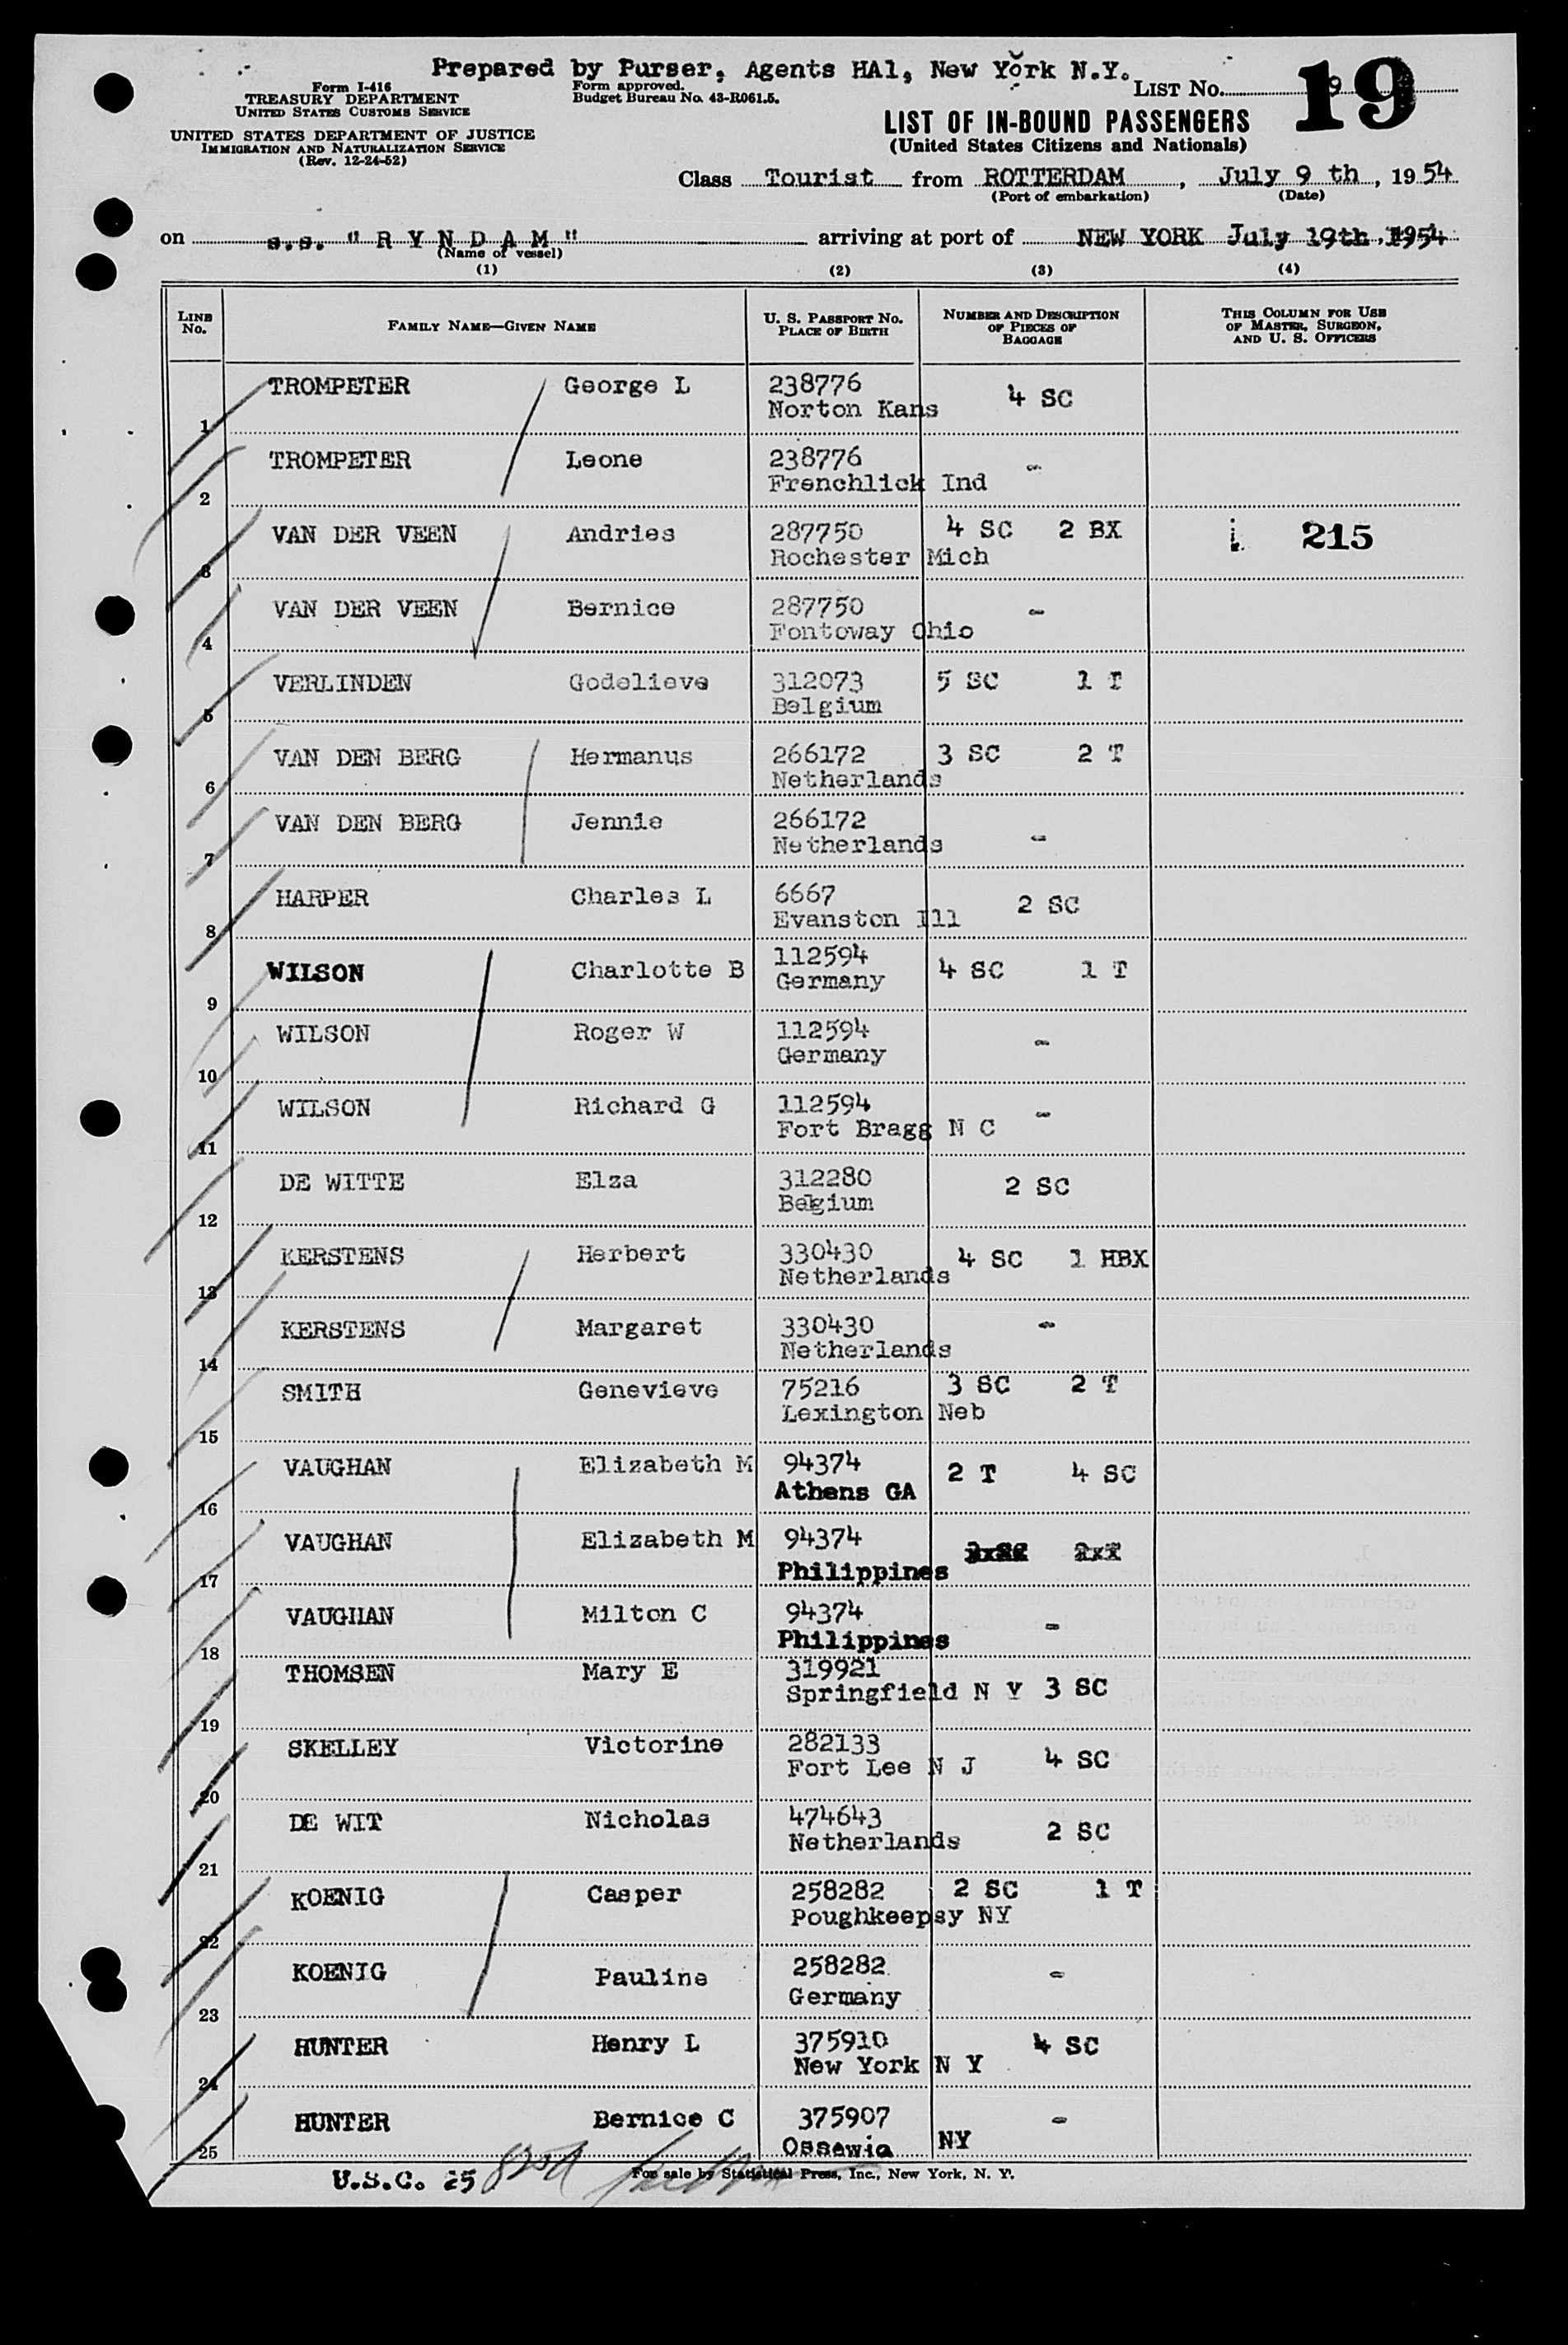 Prepared by Purser, Agents HAl, New York N.Y.
Form I-416
TREASURY DEPARTMENT
UNITED STATES CUSTOMS SERVICE
Form approved.
Budget Bureau No. 43-R061.5.
LIST No. 9
19
UNITED STATES DEPARTMENT OF JUSTICE
IMMIGRATION AND NATURALIZATION SERVICE
(Rev. 12-24-52)
LIST OF IN-BOUND PASSENGERS
(United States Citizens and Nationals)
Class Tourist from ROTTERDAM, July 9 th, 1954
(Port of embarkation) (Date)
on s.s. "RYNDAM" arriving at port of NEW YORK July 19th, 1954
(Name of vessel)
(1) (2) (3) (4)
LINE No. FAMILY NAME—GIVEN NAME U. S. PASSPORT No. PLACE OF BIRTH NUMBER AND DESCRIPTION OF PIECES OF BAGGAGE THIS COLUMN FOR USE OF MASTER, SURGEON, AND U. S. OFFICERS
1 TROMPETER George L 238776 4 SC
Norton Kans
2 TROMPETER Leone 238776 -
Frenchlick Ind
3 VAN DER VEEN Andries 287750 4 SC 2 BX 215
Rochester Mich
4 VAN DER VEEN Bernice 287750 -
Fontoway Ohio
5 VERLINDEN Godelieve 312073 5 SC 1 T
Belgium
6 VAN DEN BERG Hermanus 266172 3 SC 2 T
Netherlands
7 VAN DEN BERG Jennie 266172 -
Netherlands
8 HARPER Charles L 6667 2 SC
Evanston Ill
9 WILSON Charlotte B 112594 4 SC 1 T
Germany
10 WILSON Roger W 112594 -
Germany
11 WILSON Richard G 112594 -
Fort Bragg N C
12 DE WITTE Elza 312280 2 SC
Belgium
13 KERSTENS Herbert 330430 4 SC 1 HBX
Netherlands
14 KERSTENS Margaret 330430 -
Netherlands
15 SMITH Genevieve 75216 3 SC 2 T
Lexington Neb
16 VAUGHAN Elizabeth M 94374 2 T 4 SC
Athens GA
17 VAUGHAN Elizabeth M 94374
Philippines
18 VAUGHAN Milton C 94374 -
Philippines
19 THOMSEN Mary E 319921 3 SC
Springfield N Y
20 SKELLEY Victorine 282133 4 SC
Fort Lee N J
21 DE WIT Nicholas 474643 2 SC
Netherlands
22 KOENIG Casper 258282 2 SC 1 T
Poughkeepsy NY
23 KOENIG Pauline 258282 -
Germany
24 HUNTER Henry L 375910 4 SC
New York N Y
25 HUNTER Bernice C 375907 -
Ossawia NY
U.S.C. 25
For sale by Statistical Press, Inc., New York, N. Y.